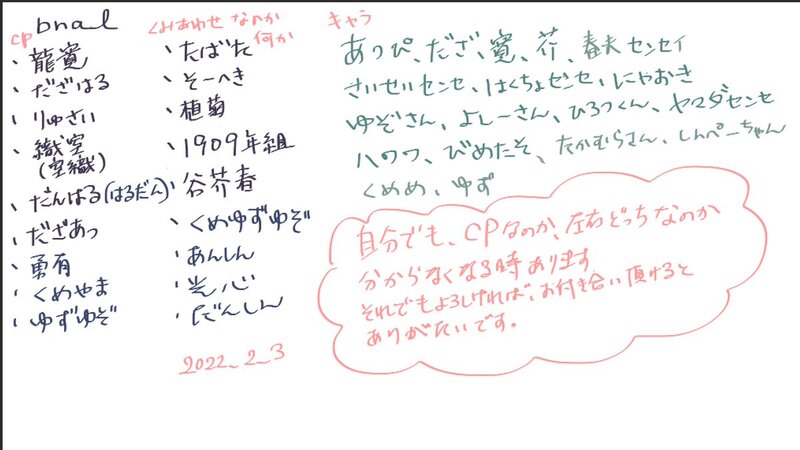 bnal
cp
・龍寛
・だざはる
・りゅさい
・織室
(室織)
・だんはる(はるだん)
・だざあっ
・勇有
・くめやま
・ゆずゆぞ
くみあわせ なのか
何か
・たばた
・そーへき
・植菊
・1909年組
・谷芥春
・くめゆずゆぞ
・あんしん
・光心
・だんしん
2022_2_3
キャラ
あっぴ、だざ、寛、芥、春夫センセイ
さいせいセンセ、はくちょセンセ、にゃおき
ゆぞさん、よしーさん、ひろつくん、ヤマダセンセ
ハワワ、びめたそ、たかむらさん、しんぺーちゃん
くめめ、ゆず
自分でも、CPなのか、左右どっちなのか
分からなくなる時あります
それでもよろしければ、お付き合い頂けると
ありがたいです。